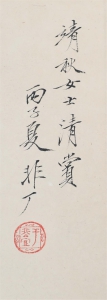 靖秋女士清賞
丙子夏非厂